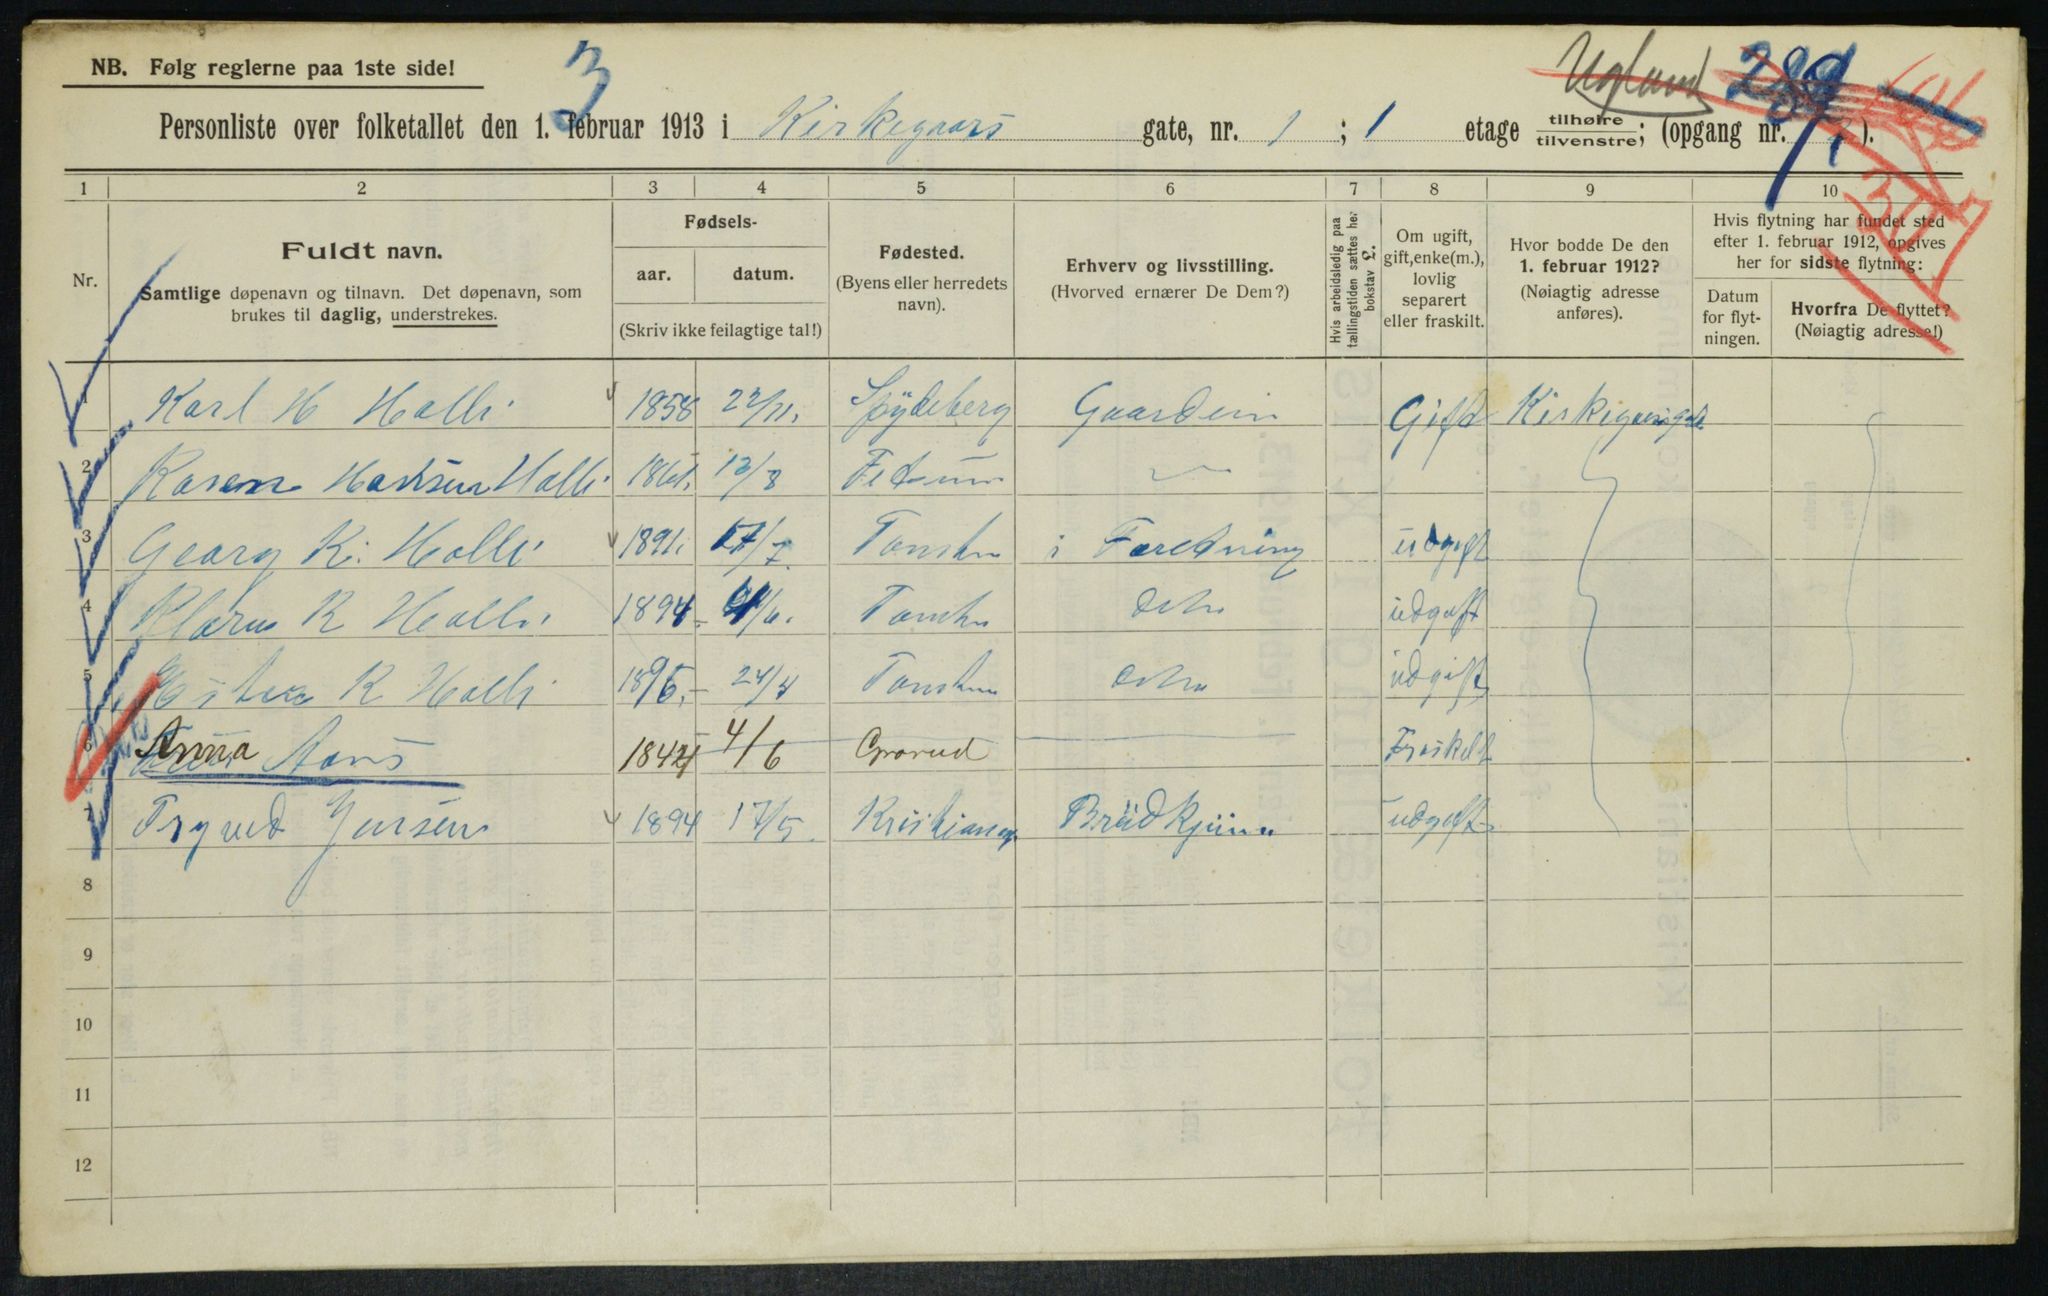 NB. Følg reglerne paa 1ste side!
3
Personliste over folketallet den 1. februar 1913 i Kirkegaars gate, nr. 1 ; 1 etage tilhøire/tilvenstre; (opgang nr. ).
1 2 3 4 5 6 7 8 9 10
Nr.
Fuldt navn.
Samtlige døpenavn og tilnavn. Det døpenavn, som
brukes til daglig, understrekes.
Fødsels-
aar. datum.
(Skriv ikke feilagtige tal!)
Fødested.
(Byens eller herredets
navn).
Erhverv og livsstilling.
(Hvorved ernærer De Dem?)
Hvis arbeidsledig paa
tællingstiden sættes her
bokstav L.
Om ugift,
gift, enke(m.),
lovlig
separert
eller fraskilt.
Hvor bodde De den
1. februar 1912?
(Nøiagtig adresse
anføres).
Hvis flytning har fundet sted
efter 1. februar 1912, opgives
her for sidste flytning:
Datum
for flyt-
ningen.
Hvorfra De flyttet?
(Nøiagtig adresse!)
1 Karl H Holli 1858 22/11. Spydeberg Gift
2 Karen Hansen Holli 13/8 Fetsum
3 Georg K. Holli 1891. 17/7. i Foretning udgift
4 K Holli 1894 /6. udgift
5 Ester K Holli 24/4 udgift
6 Anna 1844 4/6 Grorud Fraskelt
7 Trygved Jensen 1894 17/5. Kristiania udgift
8
9
10
11
12